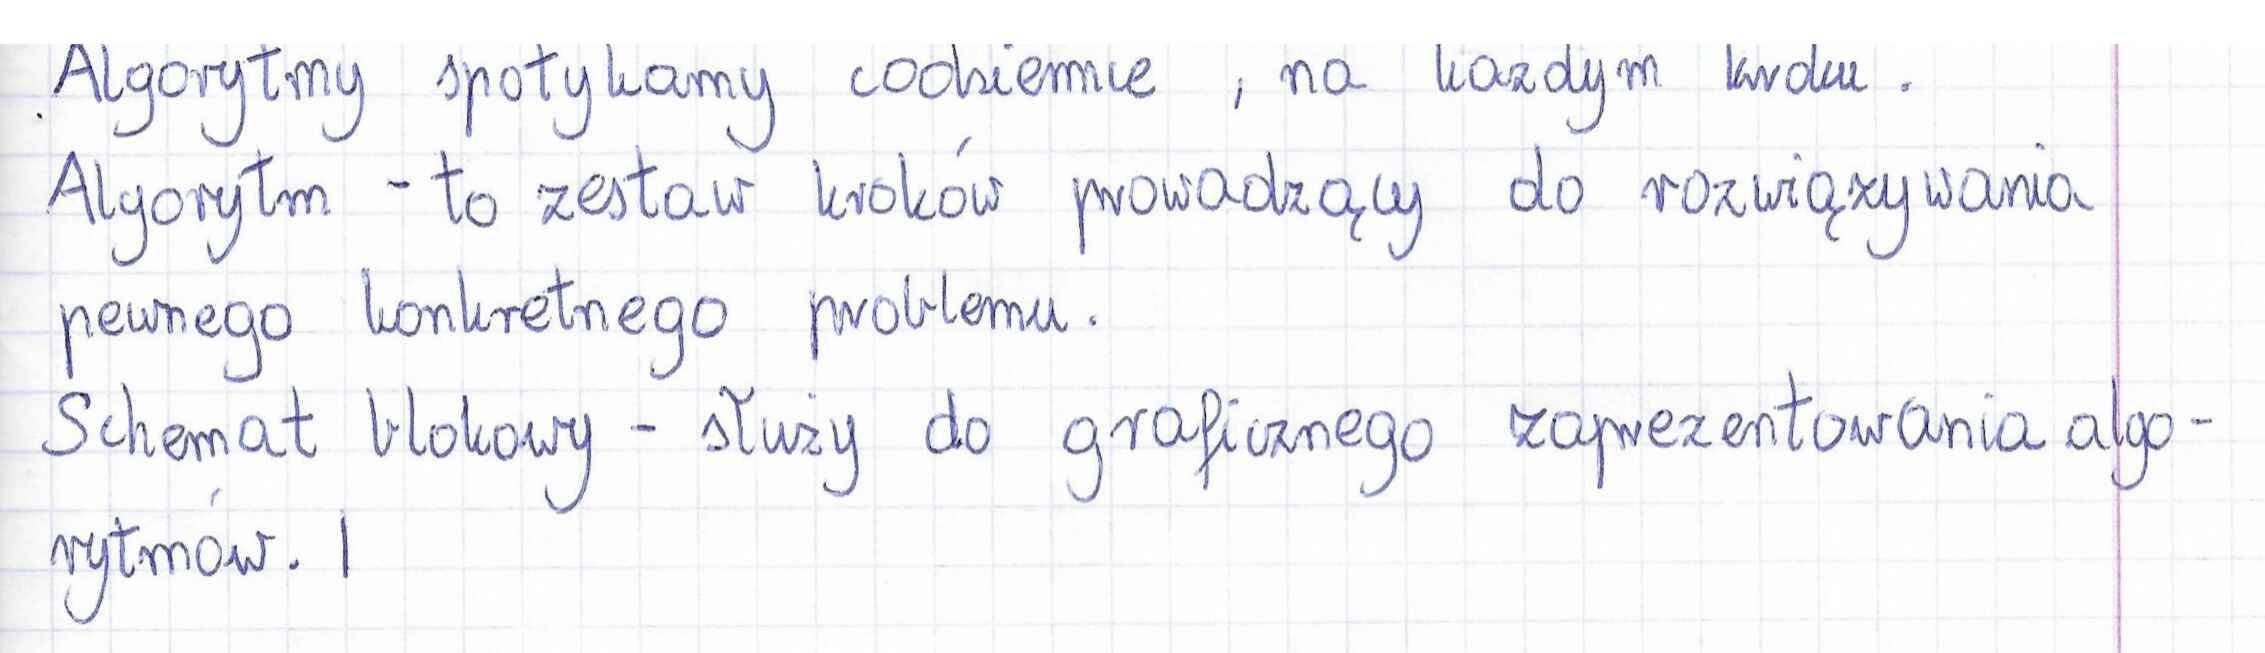 Algorytmy spotykamy codziennie, na każdym kroku.
Algorytm - to zestaw kroków prowadzący do rozwiązywania
pewnego konkretnego problemu.
Schemat blokowy - służy do graficznego zaprezentowania algo-
rytmów. |